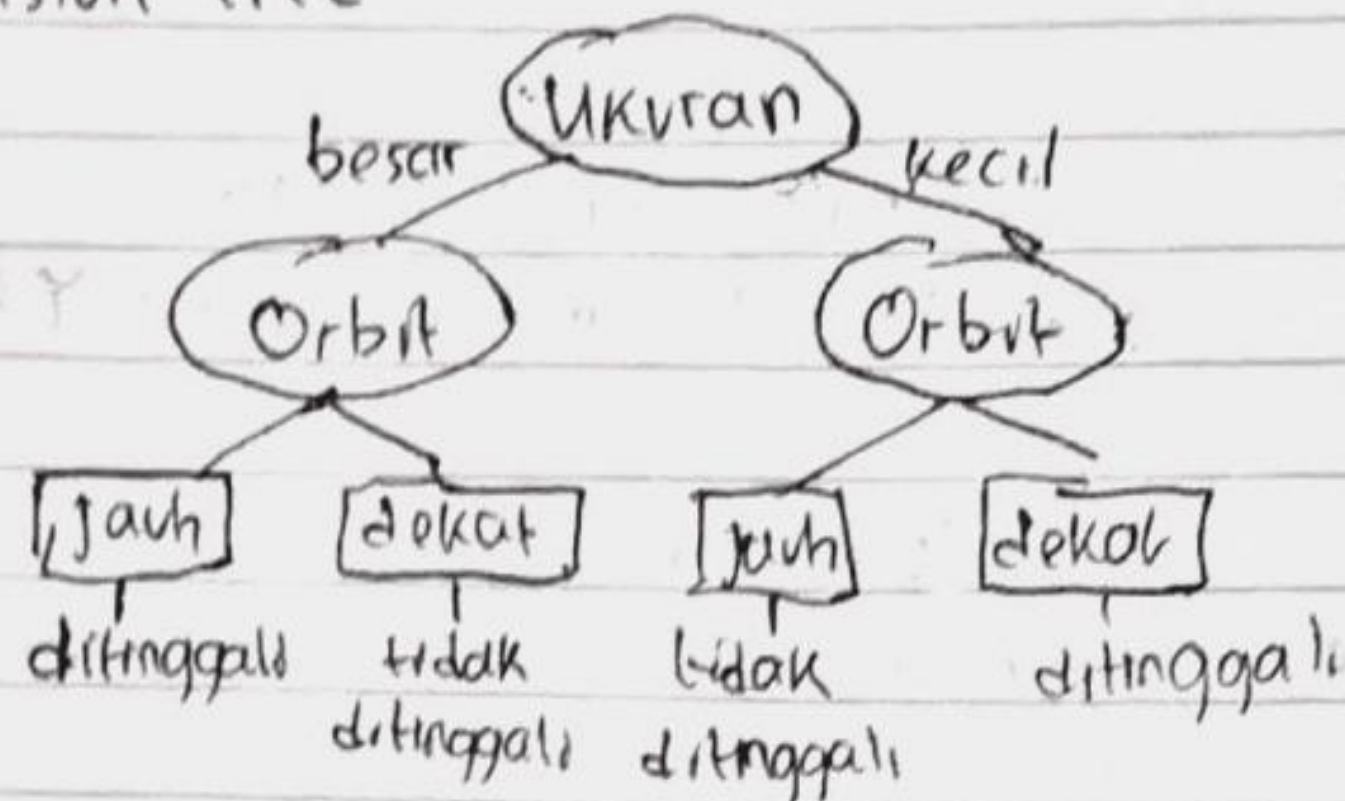 Ukuran
besar
kecil
Orbit
Orbit
jauh
dekat
jauh
dekat
ditinggali
tidak
ditinggali
tidak
ditinggali
ditinggali